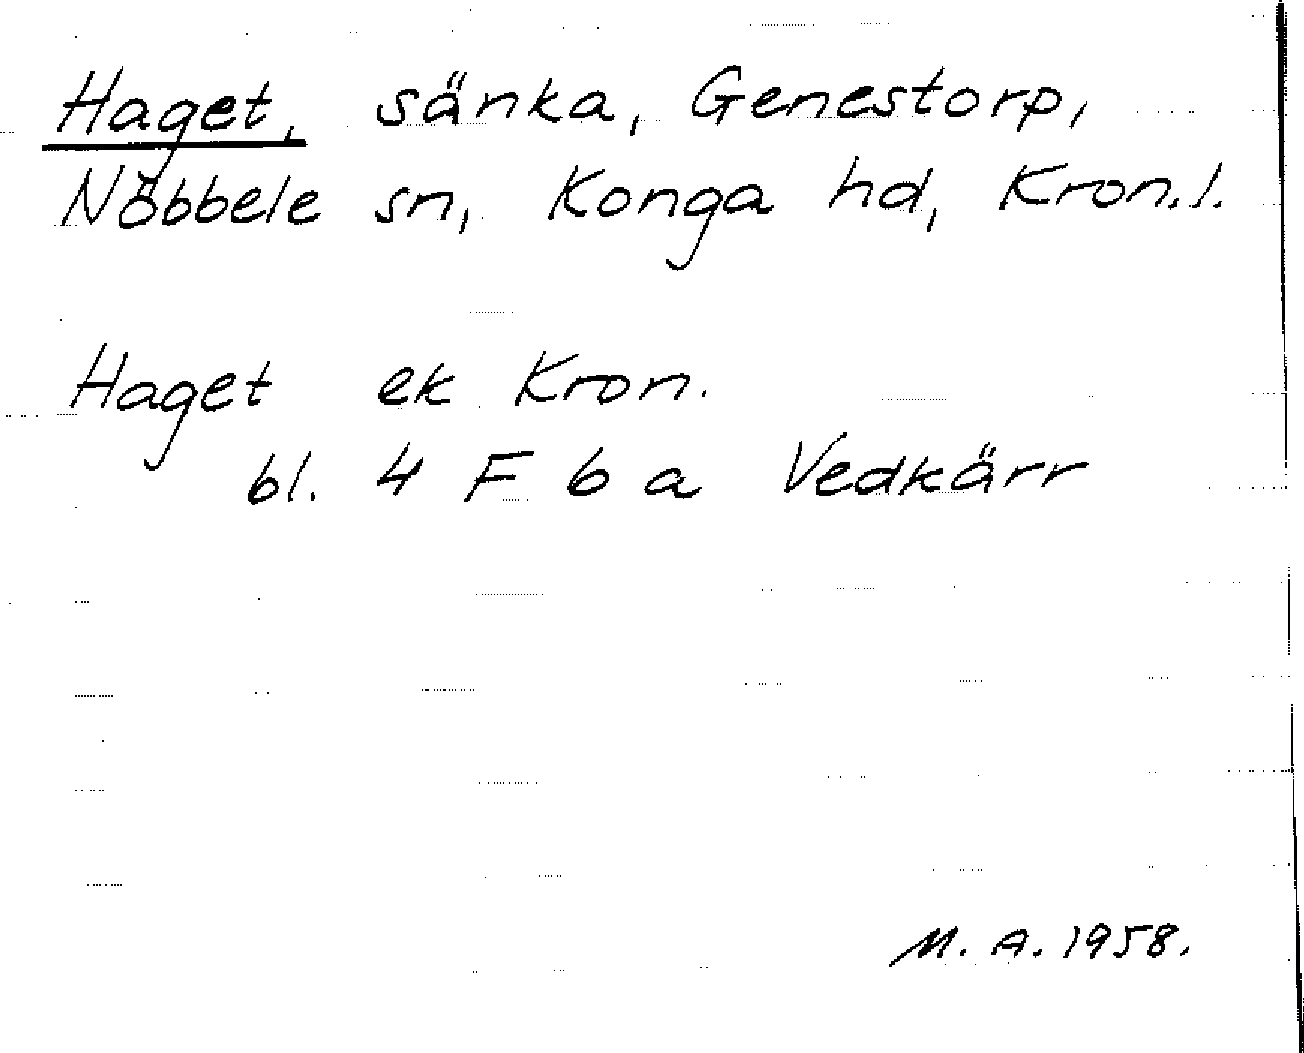 Haget, sänka, Genestorp,
Nöbbele sn, Konga hd, Kron.l.
Haget ek Kron.
bl. 4 F 6 a Vedkärr
M. A. 1958.